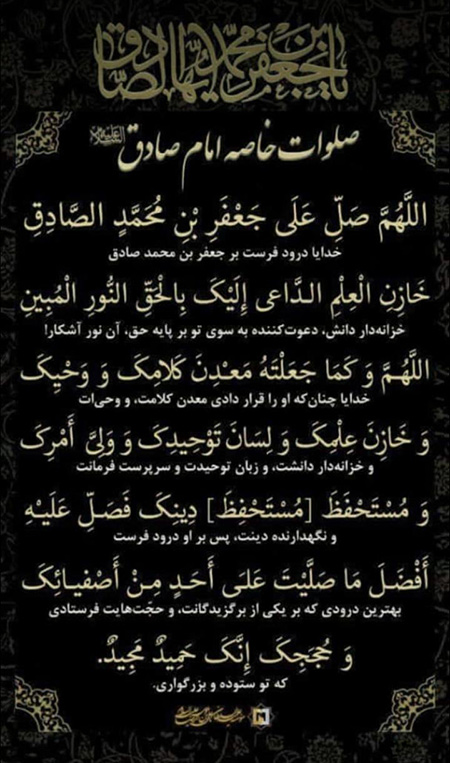 یا جعفر بن محمد ایها الصادق
صلوات خاصه امام صادق علیه‌السلام
اللَّهُمَّ صَلِّ عَلَى جَعْفَرِ بْنِ مُحَمَّدٍ الصَّادِقِ
خدایا درود فرست بر جعفر بن محمد صادق
خَازِنِ الْعِلْمِ الدَّاعی إِلَیْکَ بِالْحَقِّ النُّورِ الْمُبِینِ
خزانه‌دار دانش، دعوت‌کننده به سوی تو بر پایه حق، آن نور آشکار!
اللَّهُمَّ وَ کَمَا جَعَلْتَهُ مَعْدِنَ کَلَامِکَ وَ وَحْیِکَ
خدایا چنان‌که او را قرار دادی معدن کلامت، و وحی‌ات
وَ خَازِنَ عِلْمِکَ وَ لِسَانَ تَوْحِیدِکَ وَ وَلِیَّ أَمْرِکَ
و خزانه‌دار دانشت، و زبان توحیدت و سرپرست فرمانت
وَ مُسْتَحْفَظَ [مُسْتَحْفِظَ] دِینِکَ فَصَلِّ عَلَیْهِ
و نگهدارنده دینت، پس بر او درود فرست
أَفْضَلَ مَا صَلَّیْتَ عَلَى أَحَدٍ مِنْ أَصْفِیَائِکَ
بهترین درودی که بر یکی از برگزیدگانت، و حجّت‌هایت فرستادی
وَ حُجَجِکَ إِنَّکَ حَمِیدٌ مَجِیدٌ.
که تو ستوده و بزرگواری.